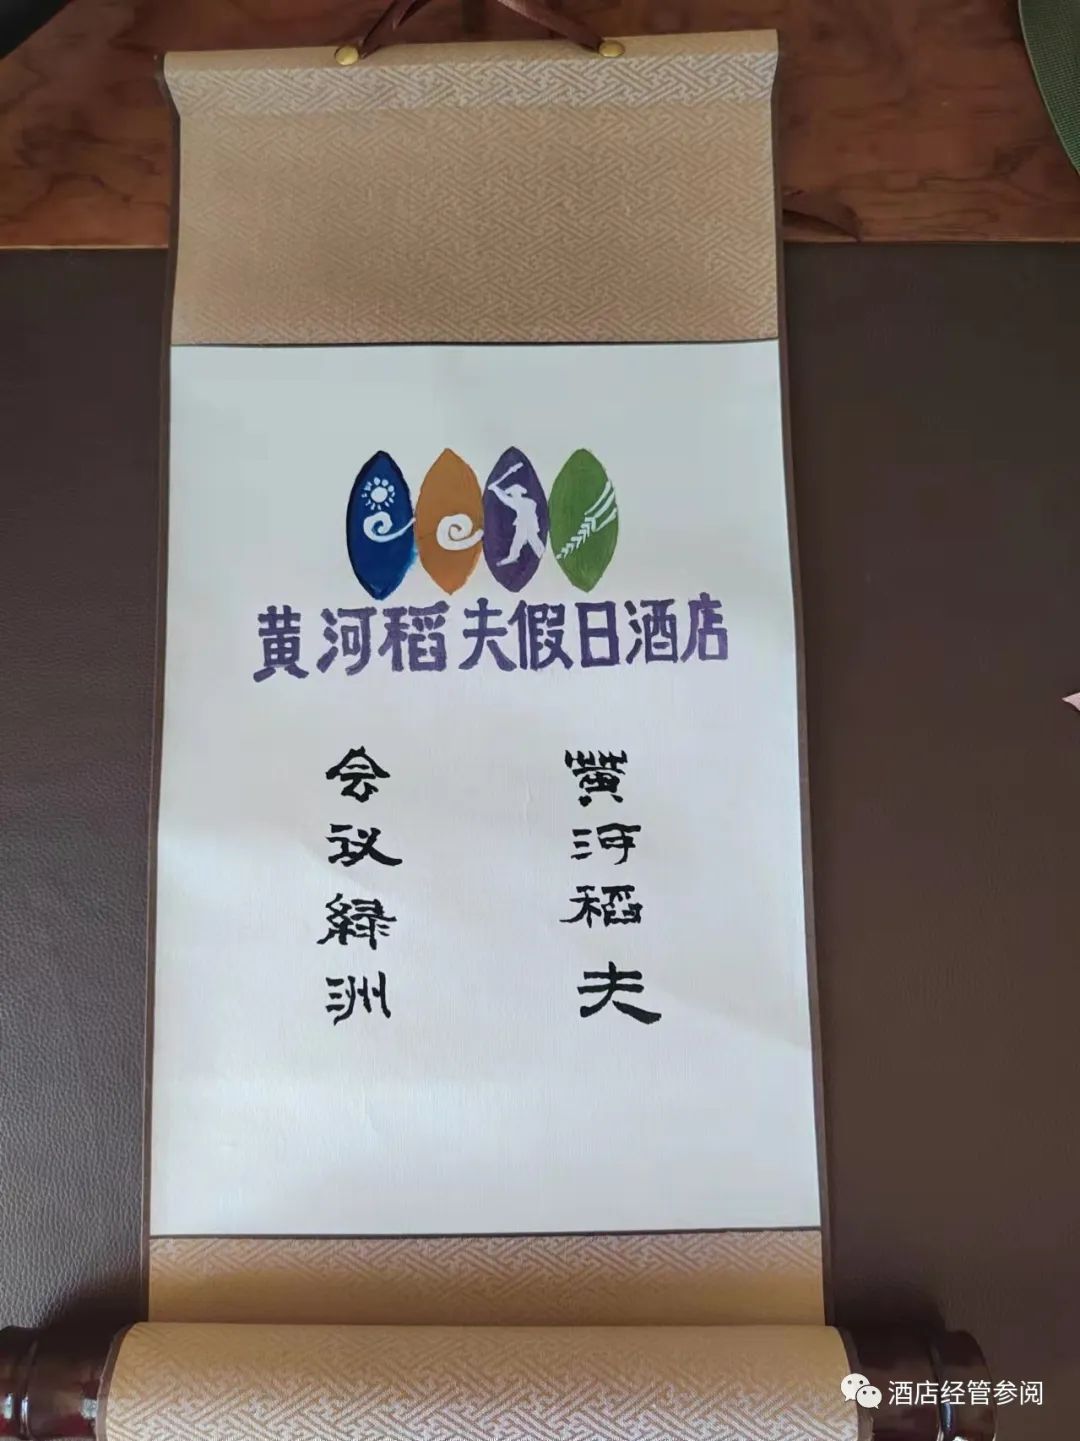 黄河稻夫假日酒店
黄河稻夫
会议緑洲
酒店经管参阅